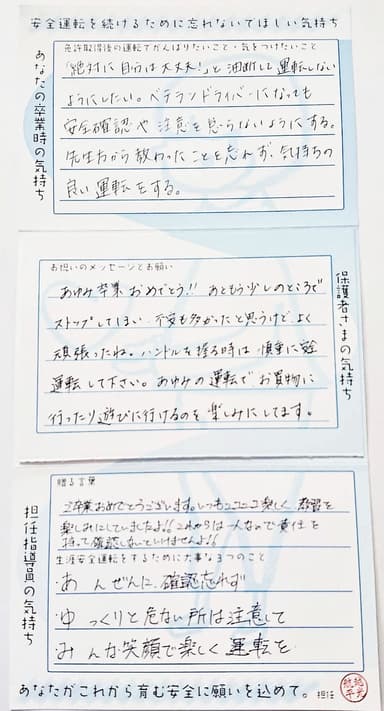 安全運転を続けるために忘れないでほしい気持ち
あなたの卒業時の気持ち
免許取得後の運転でがんばりたいこと・気をつけたいこと
「絶対に自分は大丈夫！」と油断して運転しない
ようにしたい。ベテランドライバーになっても
安全確認や注意を怠らないようにする。
先生方から教わったことを忘れず、気持ちの
良い運転をする。
保護者さまの気持ち
お祝いのメッセージとお願い
あゆみ卒業おめでとう!! あともう少しのところで
ストップしてしまい、不安も多かったと思うけどよく
頑張ったね。ハンドルを握る時は慎重に安全
運転して下さい。あゆみの運転でお買物に
行ったり遊びに行けるのを楽しみにしてます。
担任指導員の気持ち
贈る言葉
ご卒業おめでとうございます。いつもニコニコ楽しく教習を
楽しみにしていましたよ!! これからは一人なので責任を
持って確認しないといけませんよ!!
生涯安全運転をするために大事な3つのこと
・あ んぜんに、確認忘れず
・ゆ っくりと危ない所は注意して
・み んな笑顔で楽しく運転を
あなたがこれから育む安全に願いを込めて。 担任